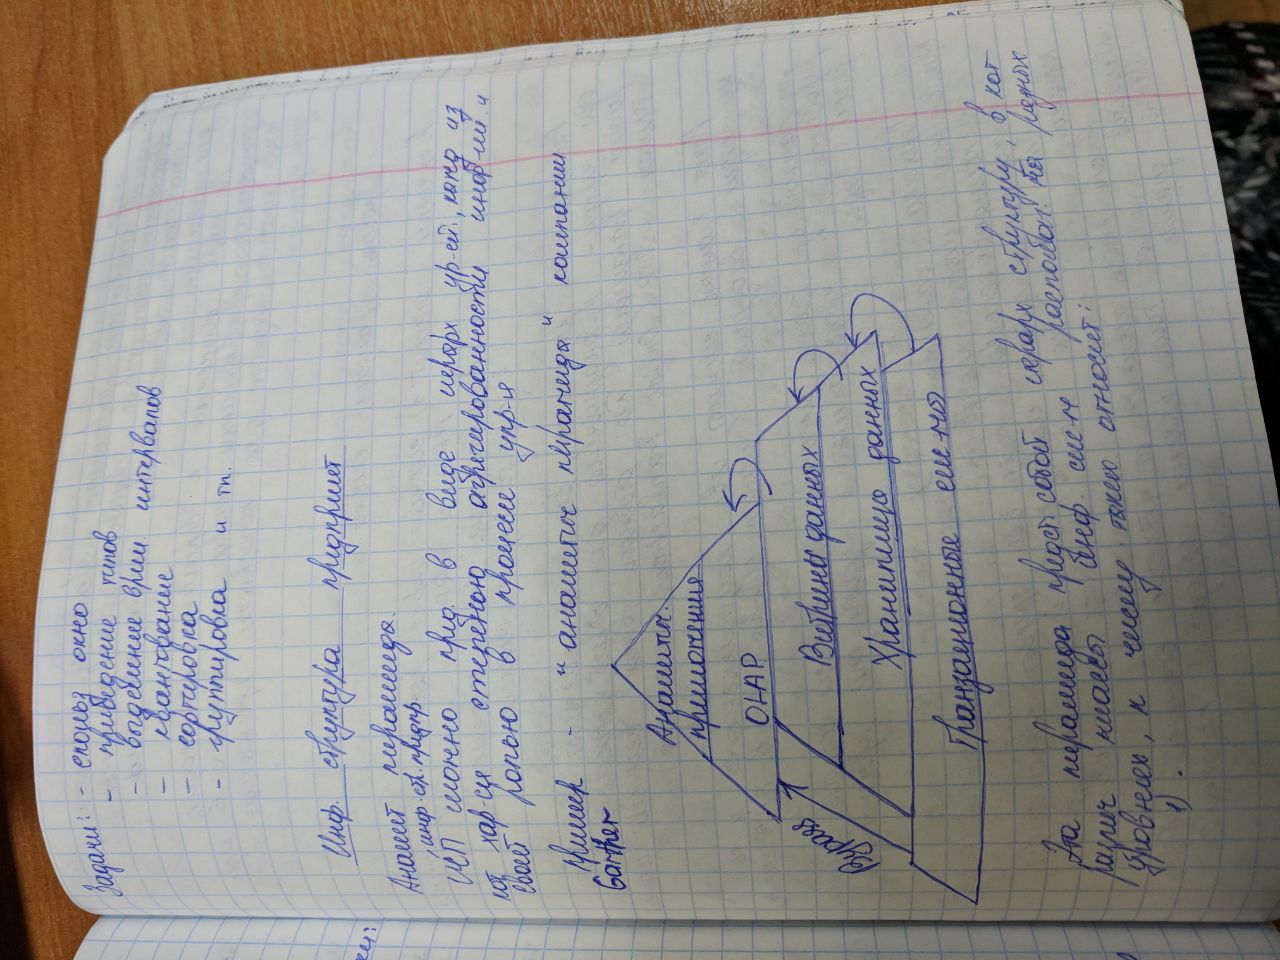 Задачи: - скольз окно
- приведение типов
- выделение врем. интервалов
- квантование
- сортировка
- группировка и тп.
Инф. структура предприят
Аналит пирамида.
инф. ст. предпр.
ИСП можно пред. в виде иерарх ур-ей, кажд из
кот хар-ся степенью агрегированности инф-ии и
своей ролью в процессе упр-я
Пример - "аналитич пирамида" компании
Gartner
Аналитич.
приложения
OLAP
Витрины данных
Хранилище данных
Транзакционные сис-мы
Эта пирамида предст собой иерарх структуру, в кот
различ классы инф. сис-м располож. на разных
уровнях, к чему также относят:
1).